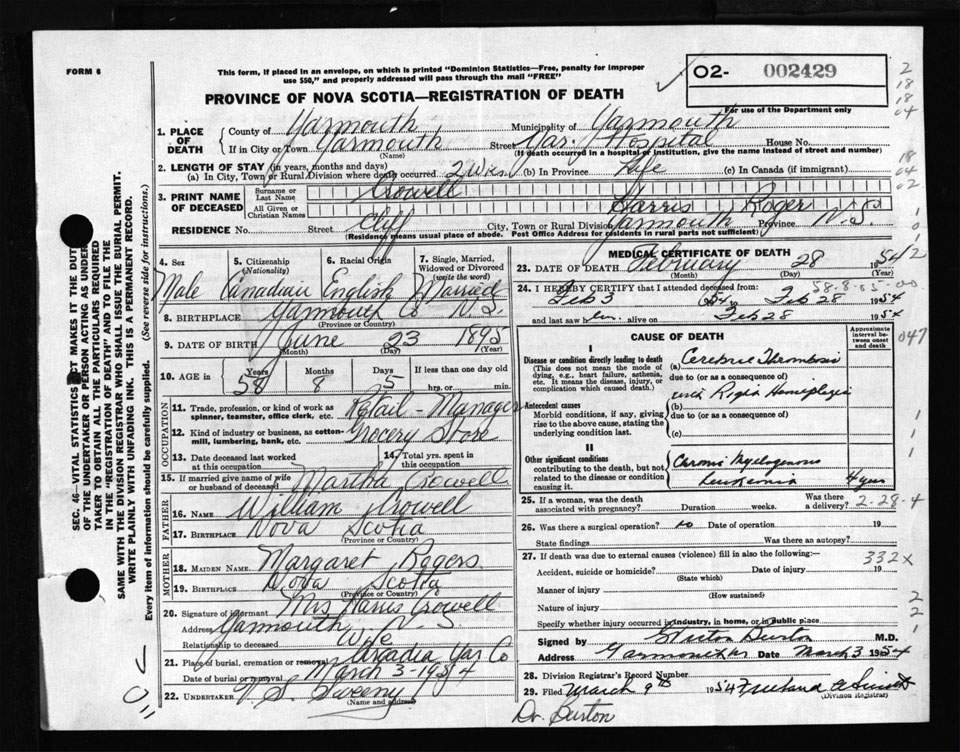 FORM 6
This form, if placed in an envelope, on which is printed "Dominion Statistics—Free, penalty for improper
use $50," and properly addressed will pass through the mail "FREE"
O2- 002429
For use of the Department only
PROVINCE OF NOVA SCOTIA—REGISTRATION OF DEATH
1. PLACE OF DEATH
County of Yarmouth Municipality of Yarmouth
If in City or Town Yarmouth Street Yar. Hospital House No.
(Name) (If death occurred in a hospital or institution, give the name instead of street and number)
2. LENGTH OF STAY (in years, months and days)
(a) In City, Town or Rural Division where death occurred 2 wks. (b) In Province Life (c) In Canada (if immigrant)
3. PRINT NAME OF DECEASED
Surname or Last Name Crowell
All Given or Christian Names Harris Roger
RESIDENCE No. Street Cliff City, Town or Rural Division Yarmouth Province N.S.
(Residency means usual place of abode. Post Office Address for residents in rural parts not sufficient)
4. Sex Male
5. Citizenship (Nationality) Canadian
6. Racial Origin English
7. Single, Married, Widowed or Divorced (write the word) Married
8. BIRTHPLACE Yarmouth Co N.S.
(Province or Country)
9. DATE OF BIRTH June 23 1895
(Month) (Day) (Year)
10. AGE in Years 58 Months 8 Days 5 If less than one day old hrs. or min.
OCCUPATION
11. Trade, profession, or kind of work as spinner, teamster, office clerk, etc. Retail - Manager
12. Kind of industry or business, as cotton-mill, lumbering, bank, etc. Grocery Store
13. Date deceased last worked at this occupation
14. Total yrs. spent in this occupation
15. If married give name of wife or husband of deceased Martha Crowell
FATHER
16. NAME William Crowell
17. BIRTHPLACE Nova Scotia
(Province or Country)
MOTHER
18. MAIDEN NAME Margaret Rogers
19. BIRTHPLACE Nova Scotia
(Province or Country)
20. Signature of informant Mrs Harris Crowell
Address Yarmouth N.S.
Relationship to deceased Wife
21. Place of burial, cremation or removal Arcadia Yar Co
Date of burial or removal March 3-1954
22. UNDERTAKER V. S. Sweeny
(Name and address)
MEDICAL CERTIFICATE OF DEATH
23. DATE OF DEATH February 28 1954
(Month) (Day) (Year)
58-8-05-00
24. I HEREBY CERTIFY that I attended deceased from:
Feb 3 1954 to Feb 28 1954
and last saw him alive on Feb 28 1954
CAUSE OF DEATH
Approximate interval between onset and death
I
Disease or condition directly leading to death
(This does not mean the mode of dying, e.g., heart failure, asthenia, etc. It means the disease, injury, or complication which caused death.)
(a) Cerebral Thrombosis
due to (or as a consequence of)
Antecedent causes
Morbid conditions, if any, giving rise to the above cause, stating the underlying condition last.
with Right Hemiplegia
(b)
due to (or as a consequence of)
(c)
II
Other significant conditions
contributing to the death, but not related to the disease or condition causing it.
Chronic Myelogenous
Leukemia 4 yrs
25. If a woman, was the death associated with pregnancy? Duration weeks. Was there a delivery?
2-28-4
26. Was there a surgical operation? no Date of operation 19
State findings Was there an autopsy?
27. If death was due to external causes (violence) fill in also the following:—
332x
Accident, suicide or homicide? Date of injury 19
(State which)
Manner of injury
(How sustained)
Nature of injury
Specify whether injury occurred in industry, in home, or in public place
Signed by Burton M.D.
Address Yarmouth NS Date March 3 1954
28. Division Registrar's Record Number
29. Filed March 9th 1954
(Division Registrar)
Dr. Burton
047
SEC. 46—VITAL STATISTICS ACT MAKES IT THE DUTY
OF THE UNDERTAKER OR PERSON ACTING AS UNDER-
TAKER TO OBTAIN ALL THE PARTICULARS REQUIRED
IN THE "REGISTRATION OF DEATH" AND TO FILE THE
SAME WITH THE DIVISION REGISTRAR WHO SHALL ISSUE THE BURIAL PERMIT.
WRITE PLAINLY WITH UNFADING INK. THIS IS A PERMANENT RECORD.
Every item of information should be carefully supplied. (See reverse side for instructions.)